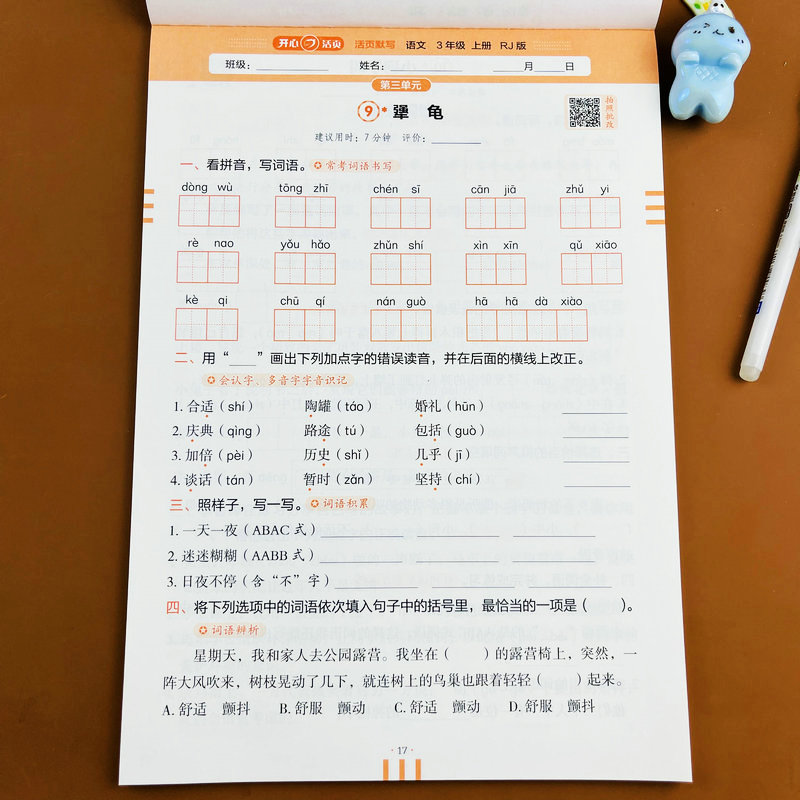 开心 活页 活页默写 语文 3年级 上册 RJ版
班级：________ 姓名：________ ____月____日
第三单元
⑨* 犟龟
拍照批改
建议用时：7分钟 评价：________
一、看拼音，写词语。 常考词语书写
dòng wù tōng zhī chén sī cān jiā zhǔ yi
rè nao yǒu hǎo zhǔn shí xìn xīn qǔ xiāo
kè qi chū qí nán guò hā hā dà xiào
二、用“____”画出下列加点字的错误读音，并在后面的横线上改正。
会认字、多音字字音识记
1. 合适（shí） 陶罐（táo） 婚礼（hūn） ________
2. 庆典（qìng） 路途（tú） 包括（guò） ________
3. 加倍（pèi） 历史（shǐ） 几乎（jī） ________
4. 谈话（tán） 暂时（zǎn） 坚持（chí） ________
三、照样子，写一写。 词语积累
1. 一天一夜（ABAC 式）________ ________ ________
2. 迷迷糊糊（AABB 式）________ ________ ________
3. 日夜不停（含“不”字）________ ________ ________
四、将下列选项中的词语依次填入句子中的括号里，最恰当的一项是（ ）。
词语辨析
星期天，我和家人去公园露营。我坐在（ ）的露营椅上，突然，一
阵大风吹来，树枝晃动了几下，就连树上的鸟巢也跟着轻轻（ ）起来。
A. 舒适 颤抖 B. 舒服 颤动 C. 舒适 颤动 D. 舒服 颤抖
· 17 ·